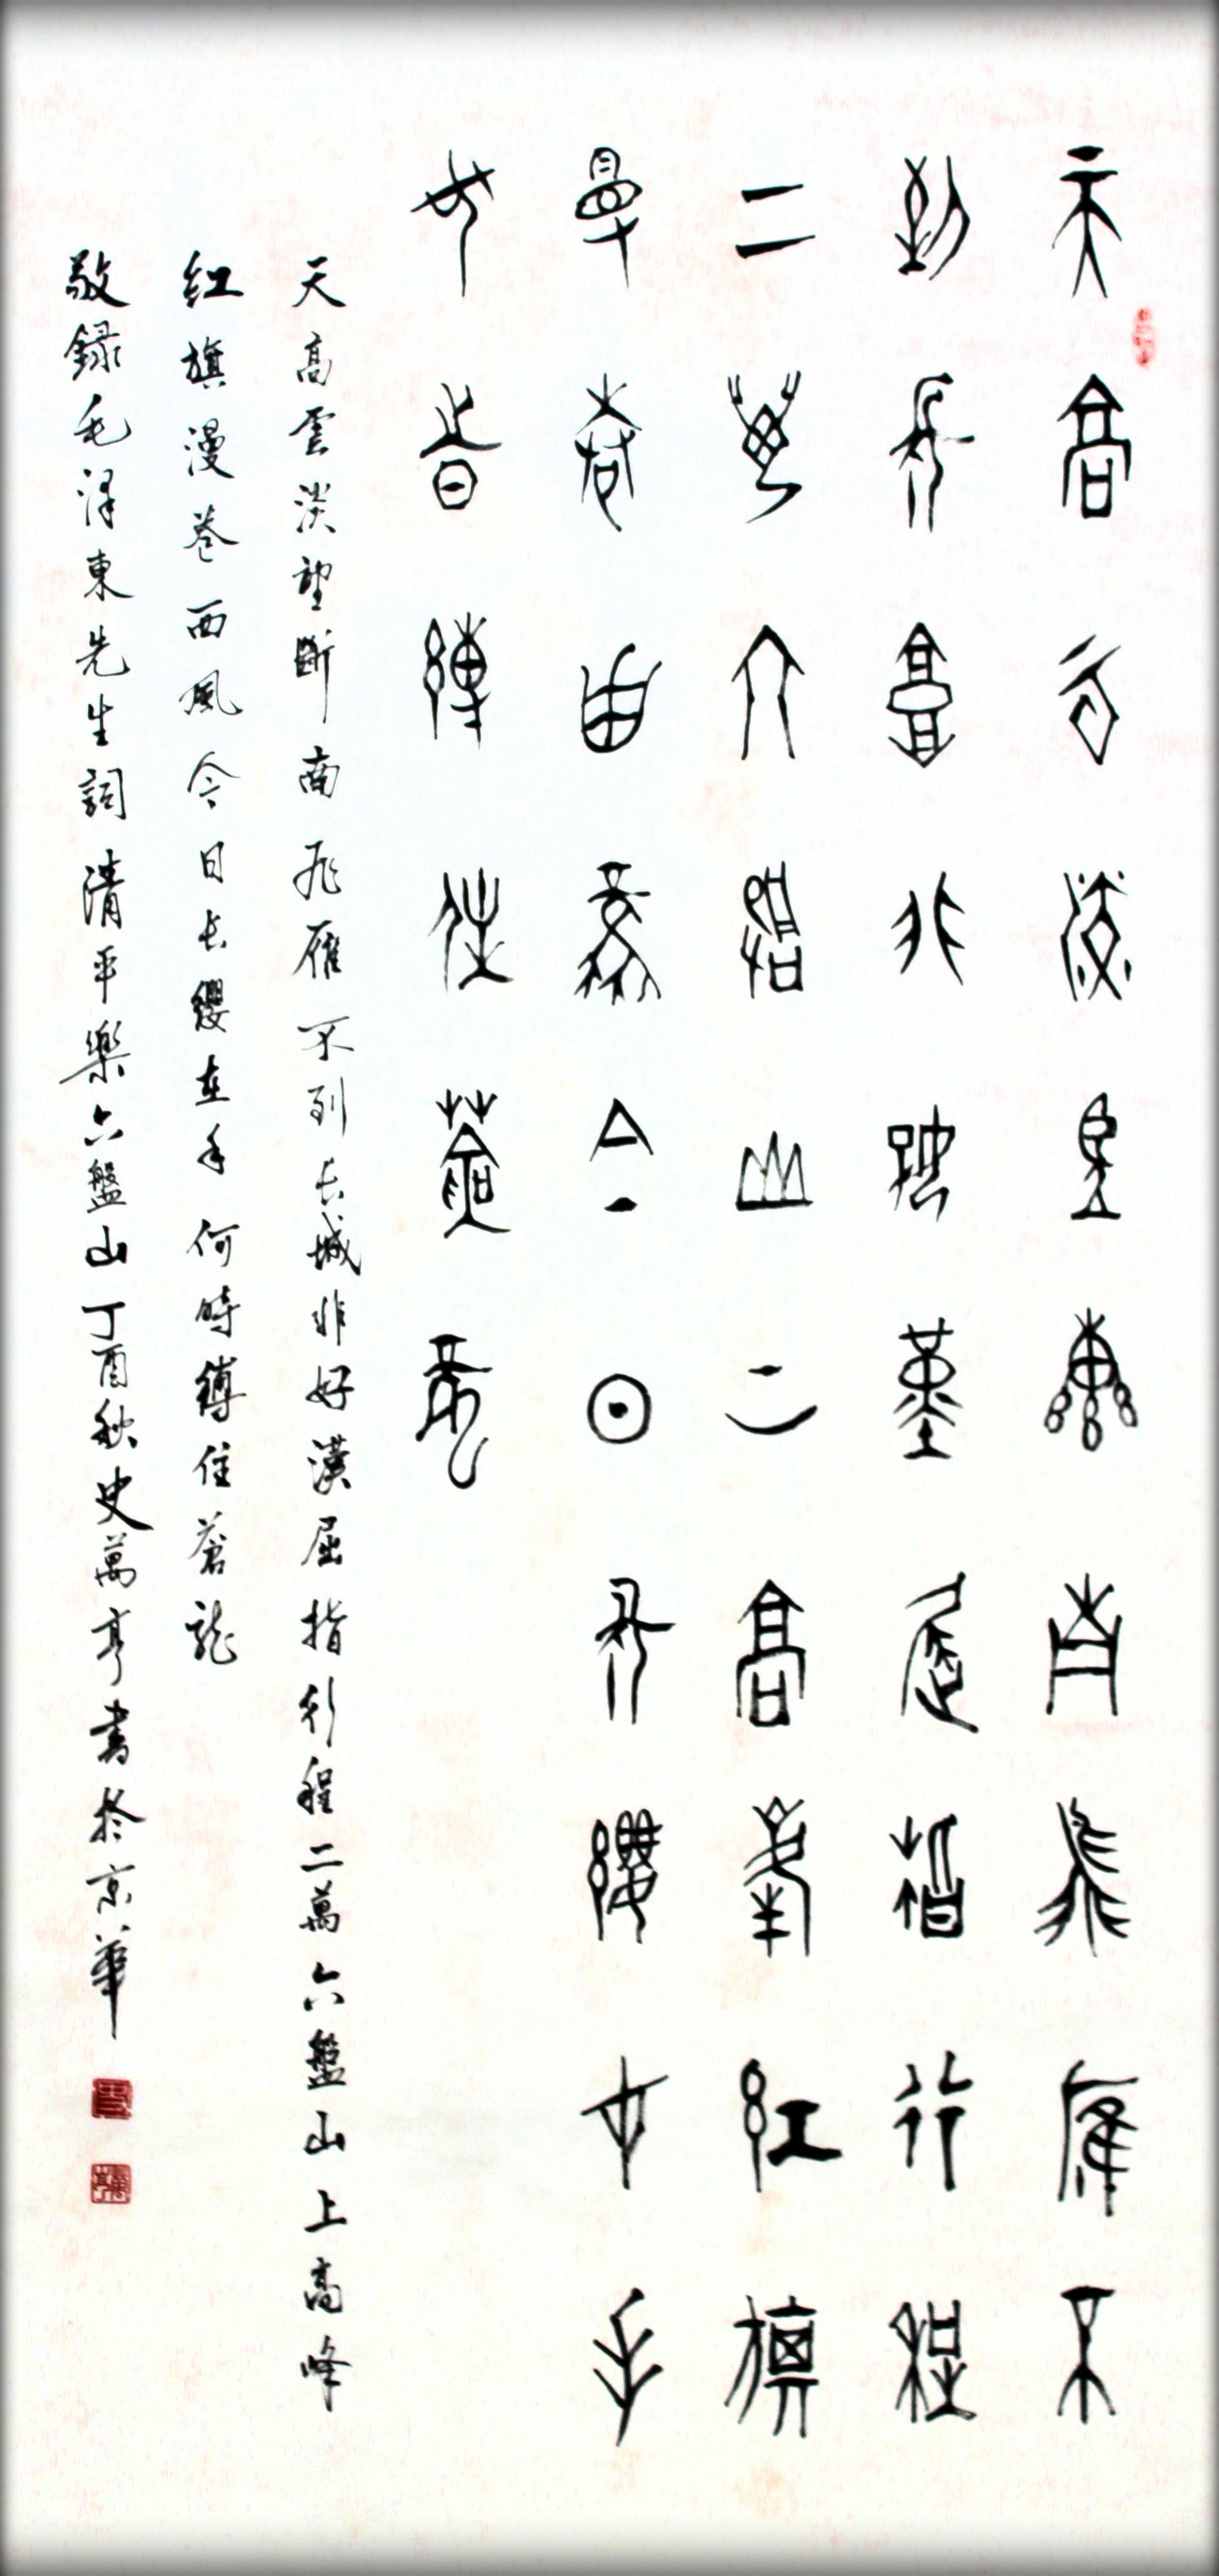 天高云淡望斷南飛雁不
到長城非好漢屈指行程
二萬六盤山上高峰紅旗
漫卷西風今日長纓在手
何時縛住蒼龍
天高雲淡望斷南飛雁不到長城非好漢屈指行程二萬六盤山上高峰
紅旗漫卷西風今日長纓在手何時縛住蒼龍
敬録毛澤東先生詞清平樂六盤山丁酉秋史萬亭書於京華